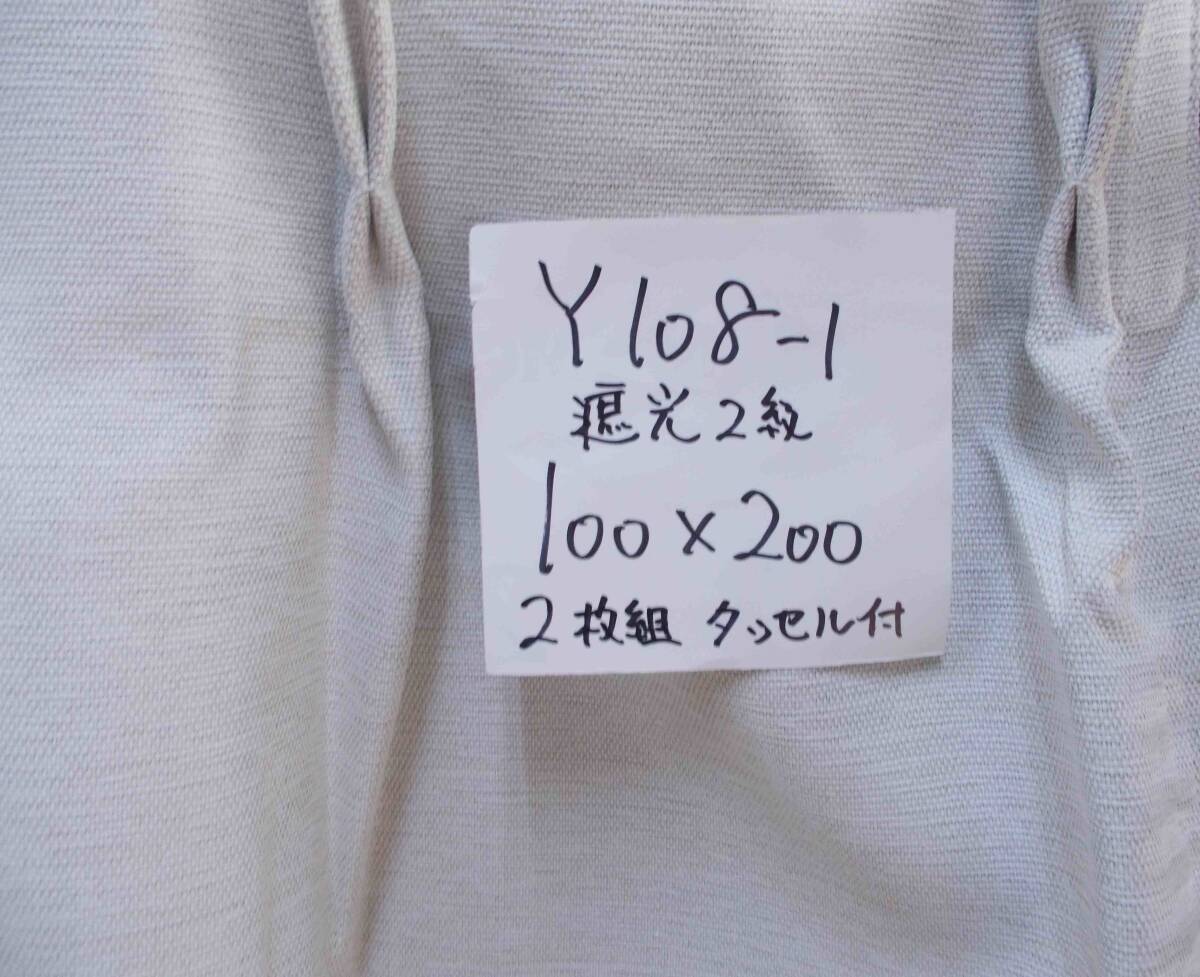 Y108-1
遮光2級
100×200
2枚組 タッセル付